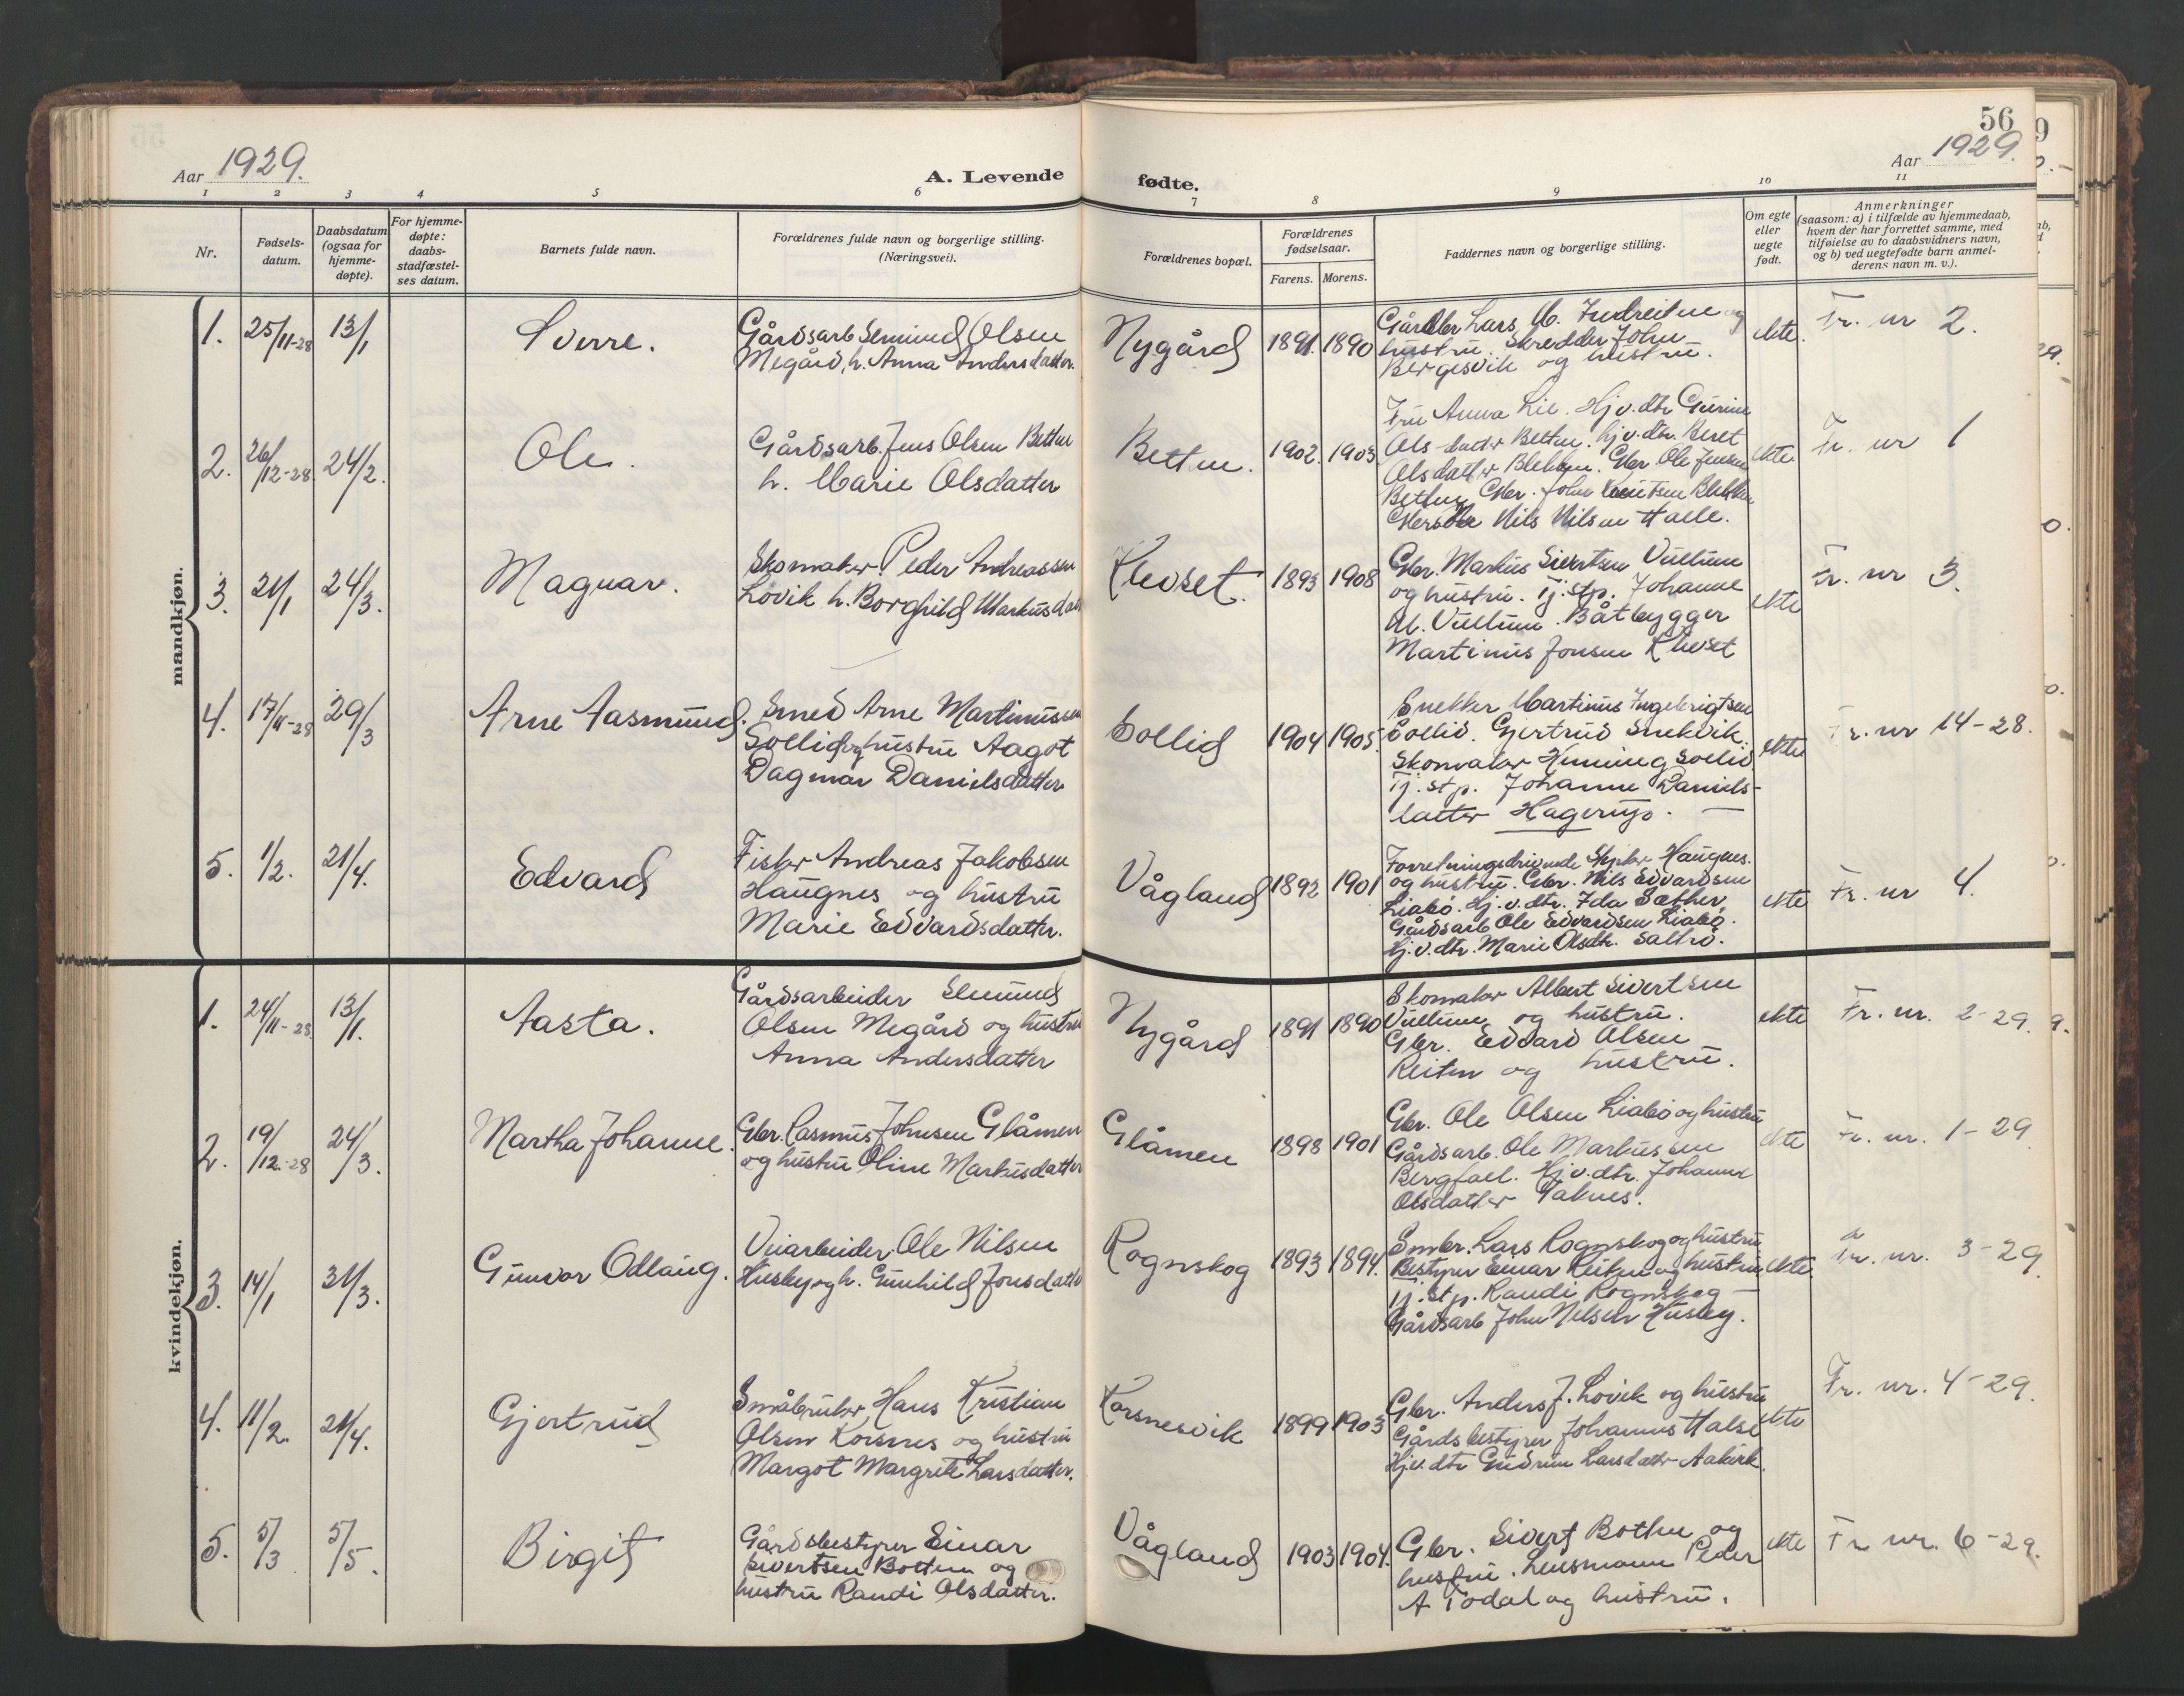 56
Aar 1929.
A. Levende fødte.
Aar 1929.
1 2 3 4 5 6 7 8 9 10 11
Nr.
Fødsels-
datum.
Daabsdatum
(ogsaa for
hjemme-
døpte).
For hjemme-
døpte:
daabs-
stadfæstel-
ses datum.
Barnets fulde navn.
Forældrenes fulde navn og borgerlige stilling.
(Næringsvei).
Forældrenes bopæl.
Forældrenes
fødselsaar.
Farens. Morens.
Faddernes navn og borgerlige stilling.
Om egte
eller
uegte
født.
Anmerkninger
(saasom: a) i tilfælde av hjemmedaab,
hvem der har forrettet samme, med
tilføielse av to daabsvidners navn,
og b) ved uegtefødte barn anmel-
derens navn m. v.).
mandkjøn.
1. 25/11-28 13/1
Sverre.
Gårdsarb Olsen
Megård, h. Anna Andersdatter.
Nygård 1891. 1890
Gårdbr Lars M. og
hustru. Skredder John
Bergesvik og hustru.
ekte.
Fr. nr 2.
2. 26/12-28 24/2.
Ole.
Gårdsarb. Jens Olsen Betten
h. Marie Olsdatter
Betten. 1902. 1903
Fru Anna Lie. Hj.v.dtr Gurine
Olsdatter Betten. hj.v.dtr. Beret
Olsdatter Blekken. Gbr. Ole Jensen
Betten Gbr. John Knutsen Blekken
Nils Nilsen Halle.
ekte.
Fr. nr 1
3. 21/1 24/3.
Magnar.
Skomaker Peder Andreassen
Løvik h. Borghild Markusdatt
Klevset. 1893 1908
Gbr. Markus Sivertsen Vullum
og hustru. Tj. stp. Johanne
M. Vullum. Båtbygger
Martinus Jonsen Klevset
ekte
Fr. nr 3.
4. 17/11-28 29/3
Arne Aasmund.
Smed Arne Martinussen
Sollid og hustru Aagot
Dagmar Danielsdatter
Sollid 1904 1905.
Snekker Martinus Ingebrigtsen
Sollid. Gjertrud Snekvik.
Skomaker Henning Sollid
Tj. stp. Johanne Daniels-
datter Hagerup. —
ekte
Fr. nr 14-28.
5. 1/2. 21/4.
Edvard
Fisker Andreas Jakobsen
Haugnes og hustru
Marie Edvardsdatter.
Vågland 1892 1901
Forretningsdrivende Haugnes.
og hustru. Gbr. Nils Edvardsen
Liabø. Hj.v.dtr. Ida Sæther.
Gårdsarb Ole Edvardsen Liabø.
Hj.v.dtr. Marie Olsdtr. Saltrø.
ekte
Fr. nr 4.
kvindekjøn.
1. 24/11-28. 13/1.
Aasta.
Gårdsarbeider
Olsen Megård og hustru
Anna Andersdatter
Nygård 1891 1890
Skomaker Albert Sivertsen
Vullum og hustru.
Gbr. Edvard Olsen
Reiten og hustru.
ekte
Fr. nr. 2-29.
2. 19/12-28 24/3.
Martha Johanne.
Gbr. Rasmus Johnsen Glåmen
og hustru Oline Markusdatter
Glåmen 1898 1901
Gbr. Ole Olsen Liabø og hustru
Gårdsarb. Ole Markussen
Bergfall. Hj.v.dtr. Johanne
Olsdatter Taknes.
ekte
Fr. nr. 1-29
3. 14/1 31/3.
Gunvor Odlaug.
Veiarbeider Ole Nilsen
Husby og h. Gunhild Jonsdatter
Rognskog 1893 1894.
Smbr. Lars Rognskog og hustru
Bestyrer Einar Reiten og hustru
Tj. st p. Randi Rognskog —
Gårdsarb John Nilsen Husby.
ekte.
Fr. nr. 3-29
4. 11/2. 21/4.
Gjertrud
Småbruker Hans Kristian
Olsen Korsnes og hustru
Margot Margrete Larsdatter.
Korsnesvik 1899 1903
Gbr. Anders J. Løvik og hustru
Gårdsbestyrer Johannes Halse
Hj.v.dtr Gudrun Larsdatter Aakvik.
ekte
Fr. nr. 4-29.
5. 5/3 5/5.
Birgit
Gårdsbestyrer Einar
Sivertsen Botten og
hustru Randi Olsdatter.
Vågland 1903 1904.
Gbr. Sivert Botten og
hustru. Lensmann Peder
A Todal og hustru.
ekte
Fr nr. 6-29.